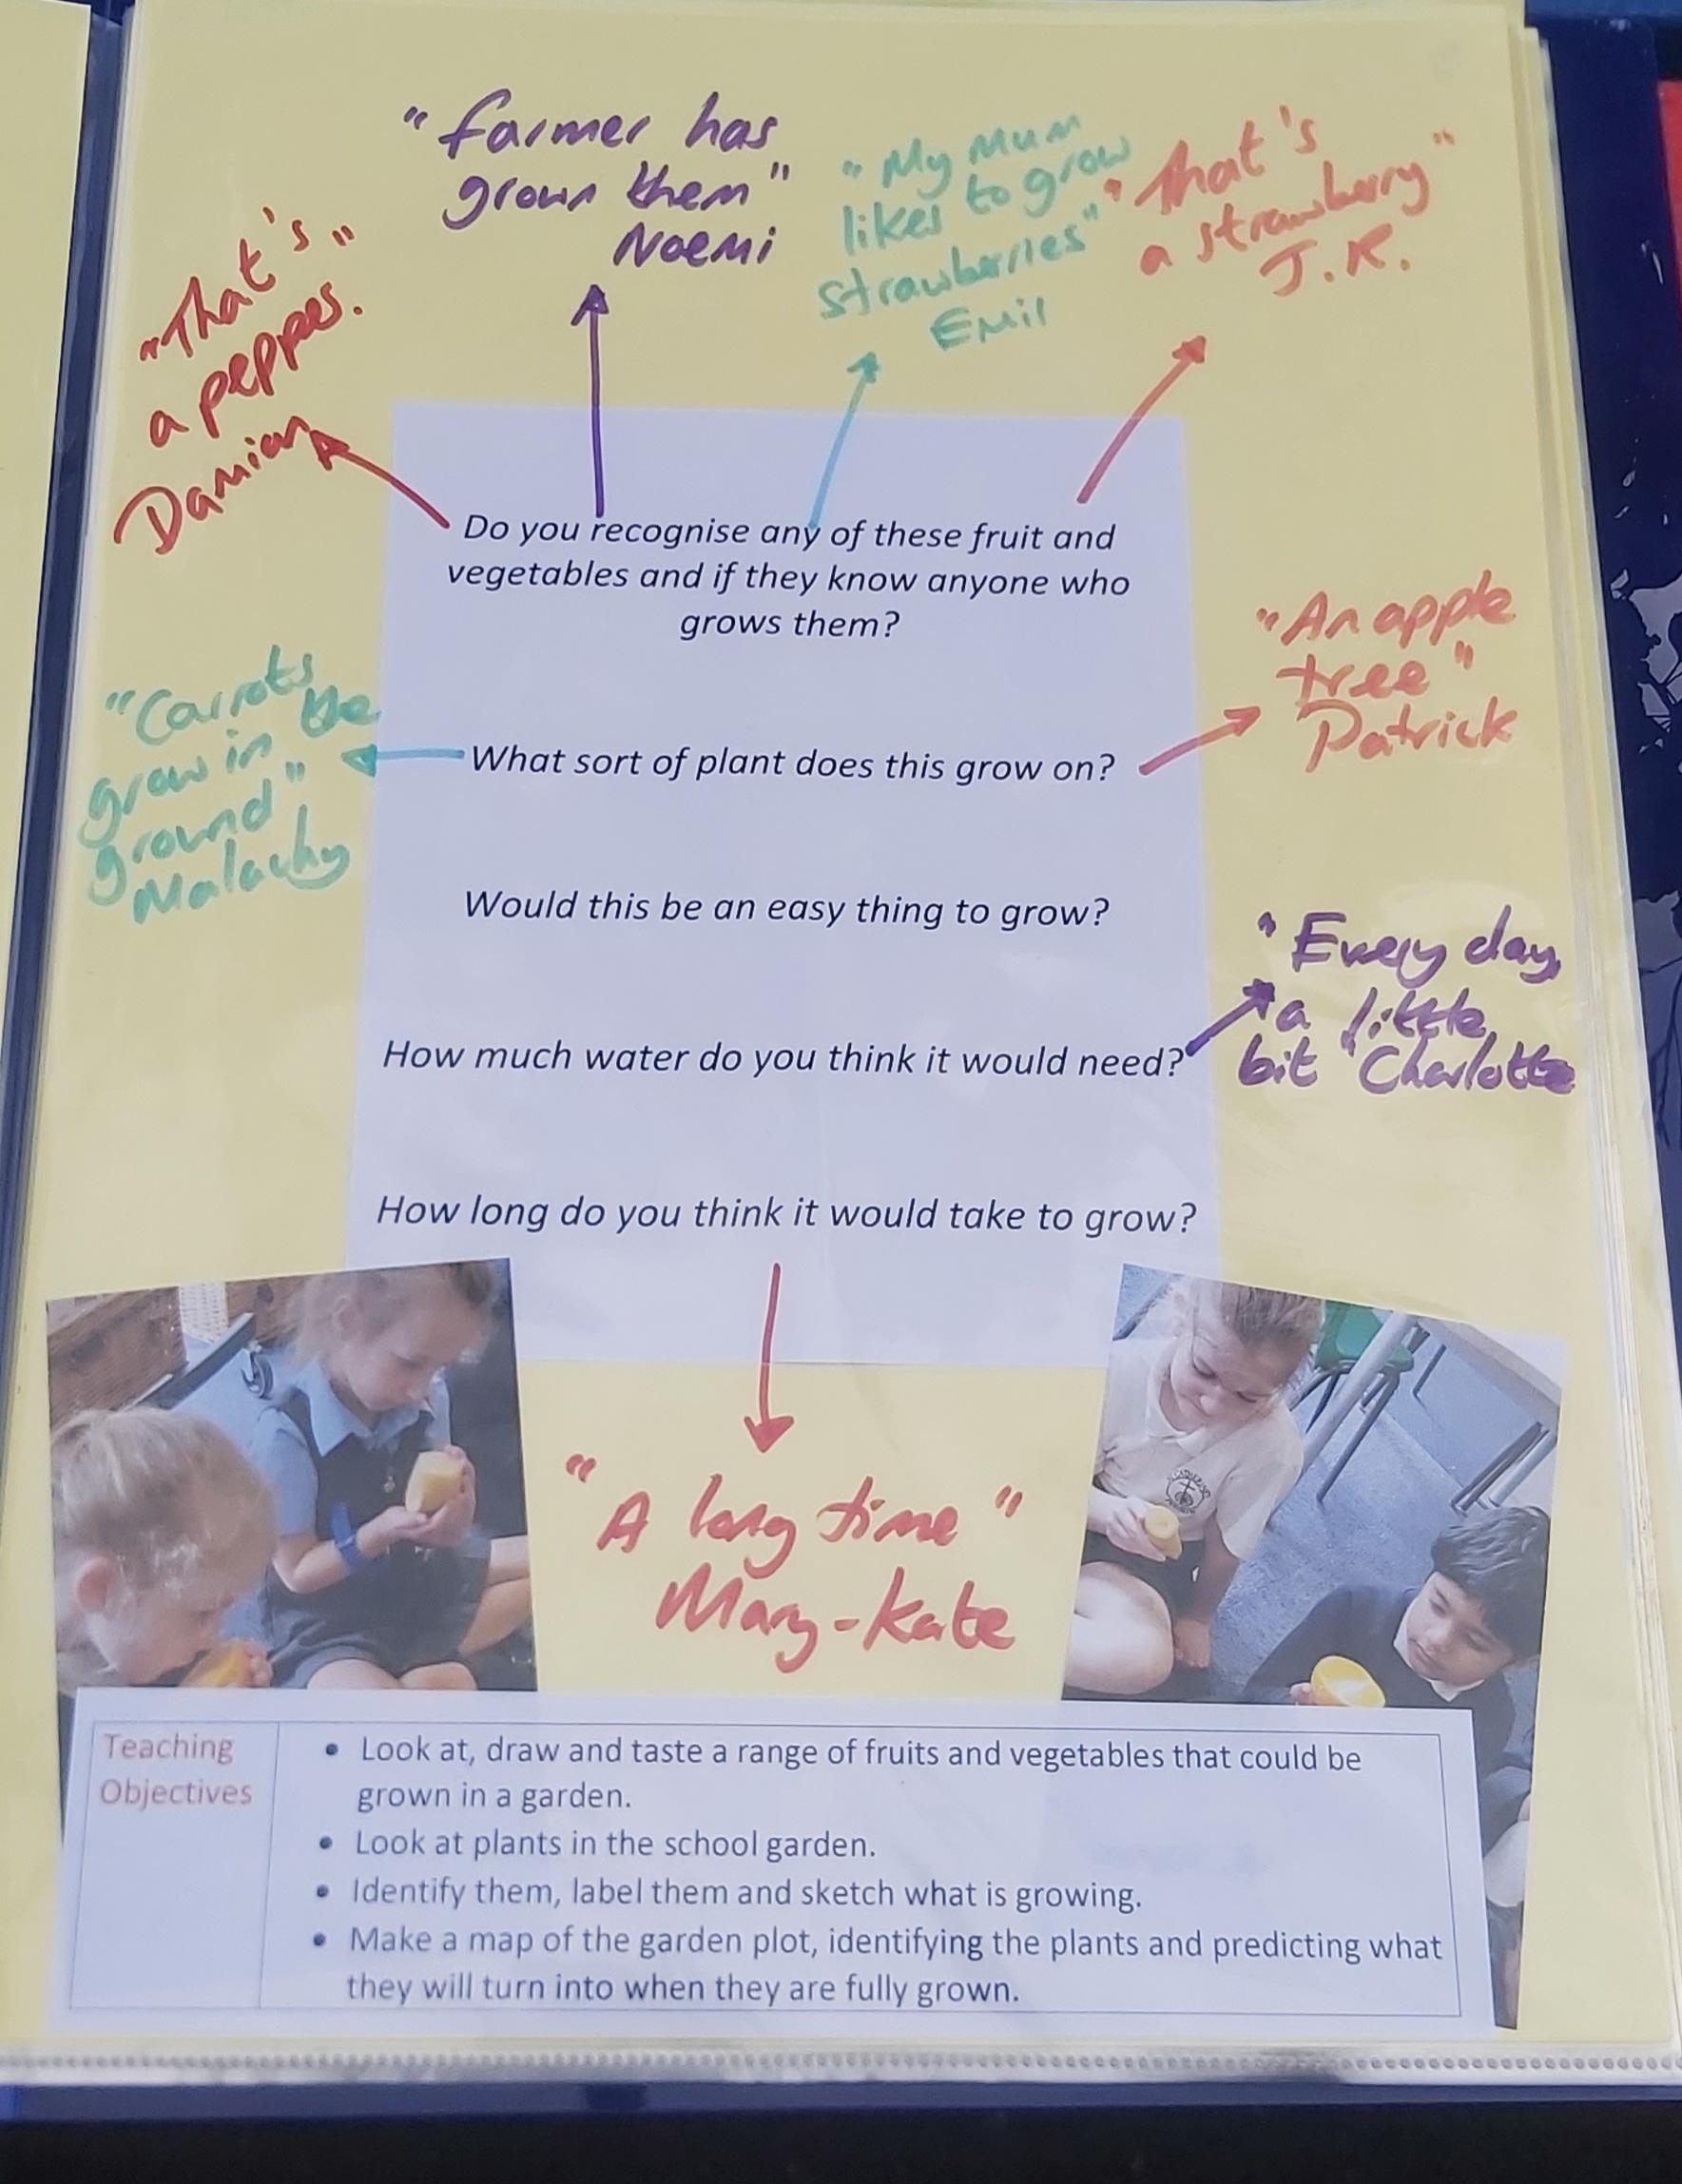 "farmer has
grown them"
Noemi
"My Mum
likes to grow
strawberries"
Emil
"That's
a strawberry"
J.R.
"That's"
a pepper.
Damian
Do you recognise any of these fruit and
vegetables and if they know anyone who
grows them?
"An apple
tree"
Patrick
"Carrots
grow in the
ground"
Malachy
What sort of plant does this grow on?
Would this be an easy thing to grow?
"Every day
a little
bit" Charlotte
How much water do you think it would need?
How long do you think it would take to grow?
"A long time"
Mary-Kate
Teaching
Objectives
• Look at, draw and taste a range of fruits and vegetables that could be
grown in a garden.
• Look at plants in the school garden.
• Identify them, label them and sketch what is growing.
• Make a map of the garden plot, identifying the plants and predicting what
they will turn into when they are fully grown.